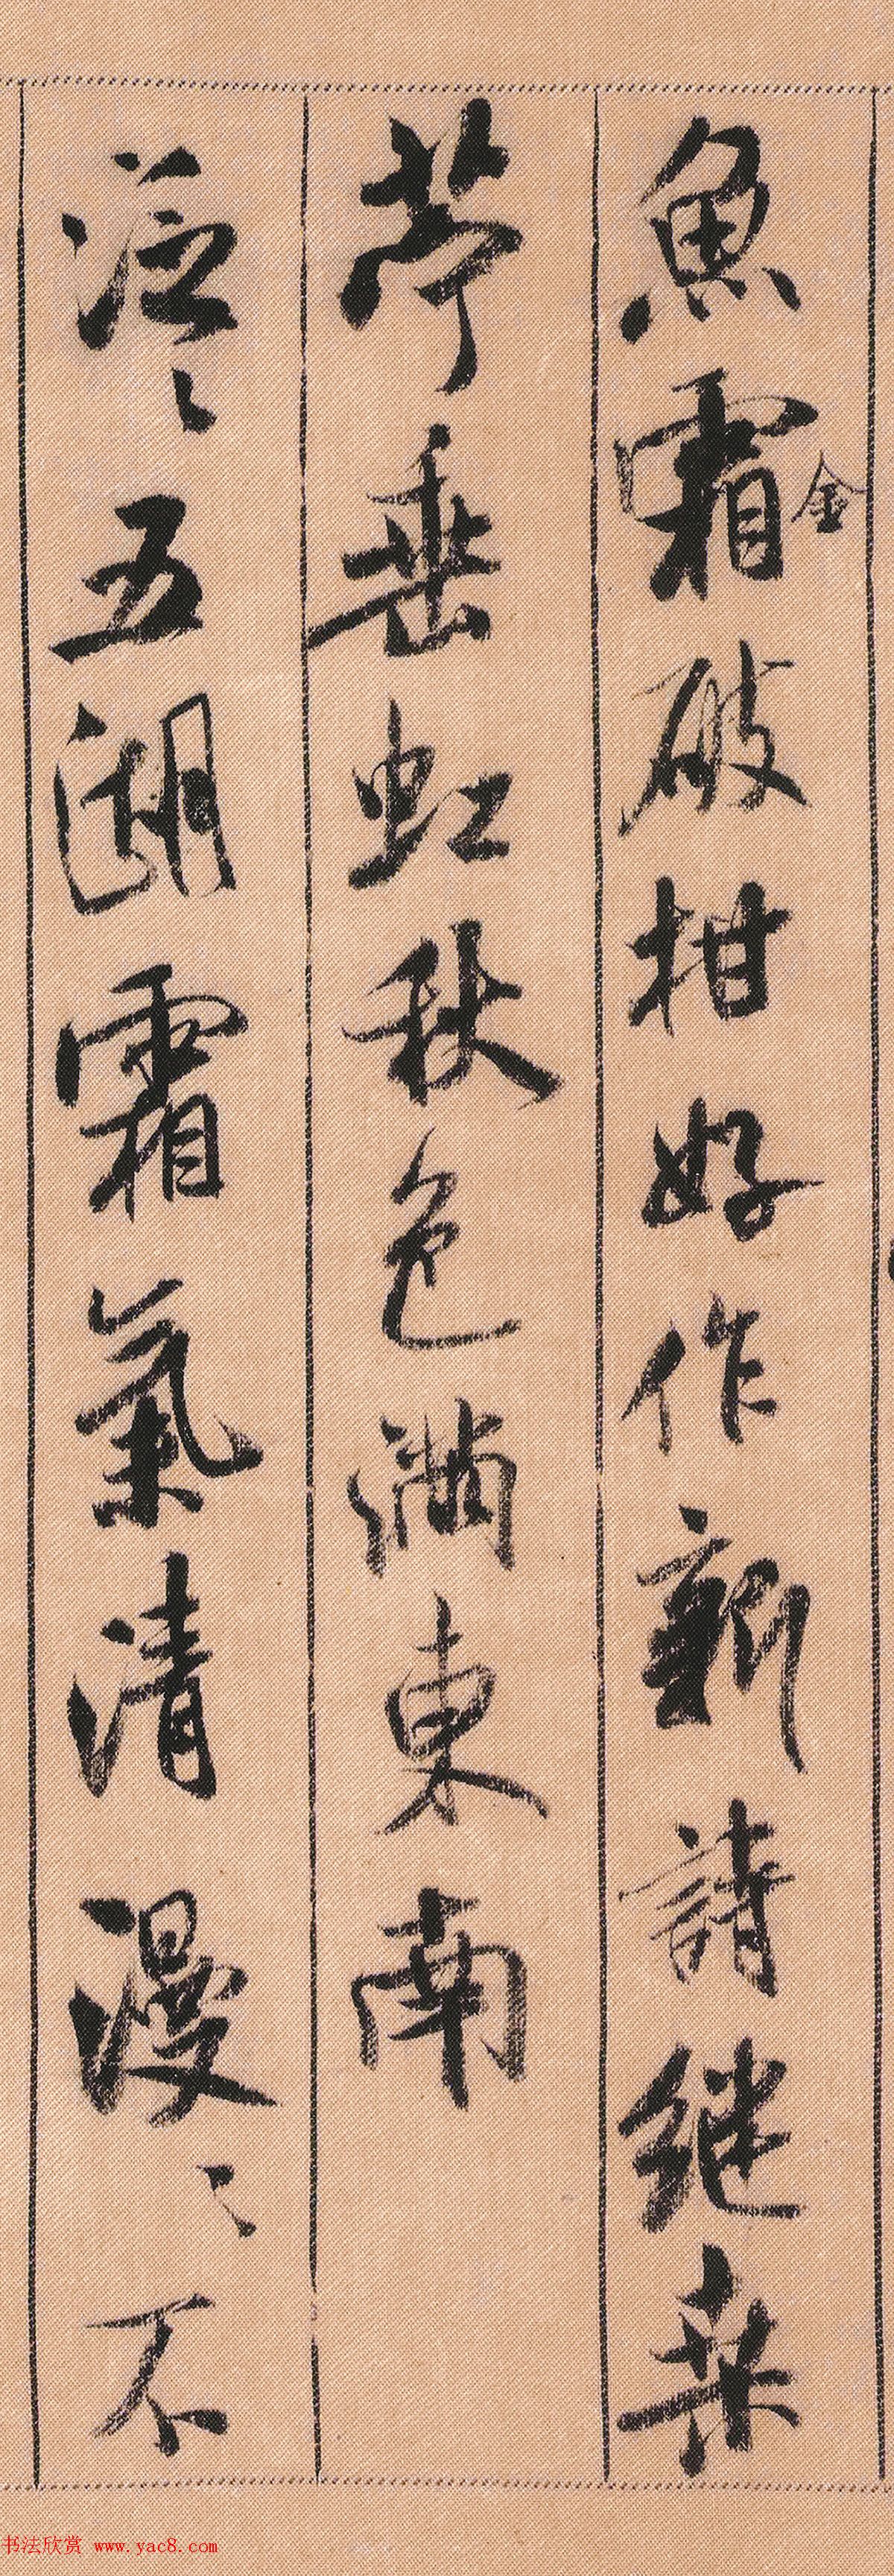 魚霜金破柑好作新詩継桑
苧垂虹秋色滿東南
泛〻五湖霜氣清漫〻不
书法欣赏 www.yac8.com